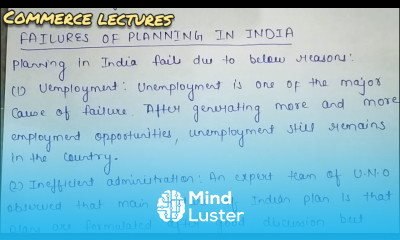 COMMERCE LECTURES
FAILURES OF PLANNING IN INDIA
Planning in India fails due to below reasons:
(1) Uemployment: Unemployment is one of the major
Cause of failure. After generating more and more
employment opportunities, unemployment still remains
in the country.
(2) Inefficient administration: An expert team of U.N.O
observed that main Indian plan is that
Mind
Luster
plans are formulated after discussion but